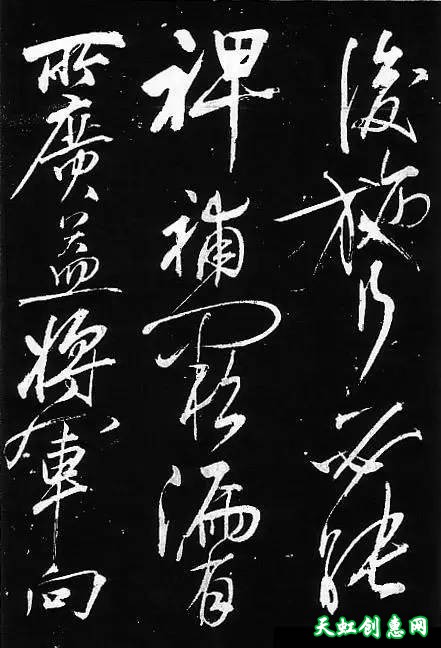 後施行必能
裨補闕漏有
所廣益將軍向
天虹创惠网